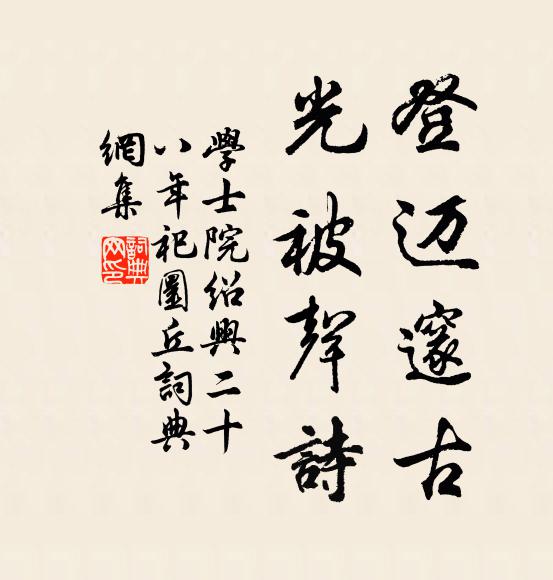 登迈邃古
光被聲詩
學士院紹興二十
八年祀圜丘詞典
網集
詞典網印